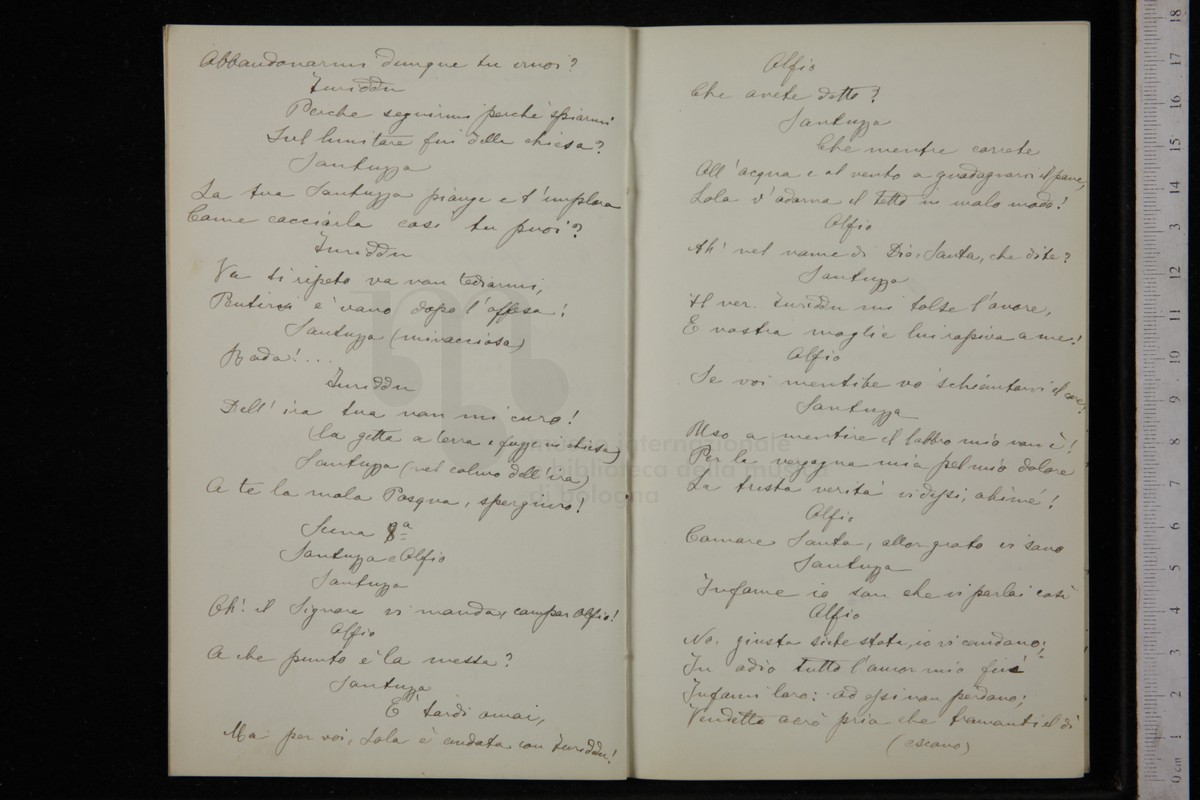 Abbandonarmi dunque tu vuoi?
Turiddu
Perche seguirmi perchè spiarmi
Sul limitare fin della chiesa?
Santuzza
La tua Santuzza piange e t'implora
Come cacciarla così tu puoi?
Turiddu
Va ti ripeto va non tediarmi,
Pentirsi è vano dopo l'offesa!
Santuzza (minacciosa)
Bada!...
Turiddu
Dell'ira tua non mi curo!
(la getta a terra e fugge in chiesa)
Santuzza (nel colmo dell'ira)
A te la mala Pasqua, spergiuro!
Scena 8ª
Santuzza e Alfio
Santuzza
Oh! il Signore vi manda, compar Alfio!
Alfio
A che punto è la messa?
Santuzza
E' tardi omai,
Ma per voi, Lola è andata con Turiddu!
Alfio
Che avete detto?
Santuzza
Che mentre correte
All'acqua e al vento a guadagnarvi il pane,
Lola v'adorna il tetto in malo modo!
Alfio
Ah! nel nome di Dio, Santa, che dite?
Santuzza
Il ver. Turiddu mi tolse l'onore,
E vostra moglie lui rapiva a me!
Alfio
Se voi mentite vo' schiantarvi il core!
Santuzza
Uso a mentire il labbro mio non è!
Per la vergogna mia pel mio dolore
La trista verità vi dissi, ahimè!
Alfio
Comare Santa, allor grato vi sono
Santuzza
Infame io son che vi parlai così
Alfio
No, giusta siete stata, io vi condono;
In odio tutto l'amor mio finì
Infami loro: ad essi non perdono;
Vendetta avrò pria che tramonti il dì
(escono)
museo internazionale
biblioteca della musica
di bologna
0 cm 1 2 3 4 5 6 7 8 9 10 11 12 13 14 15 16 17 18